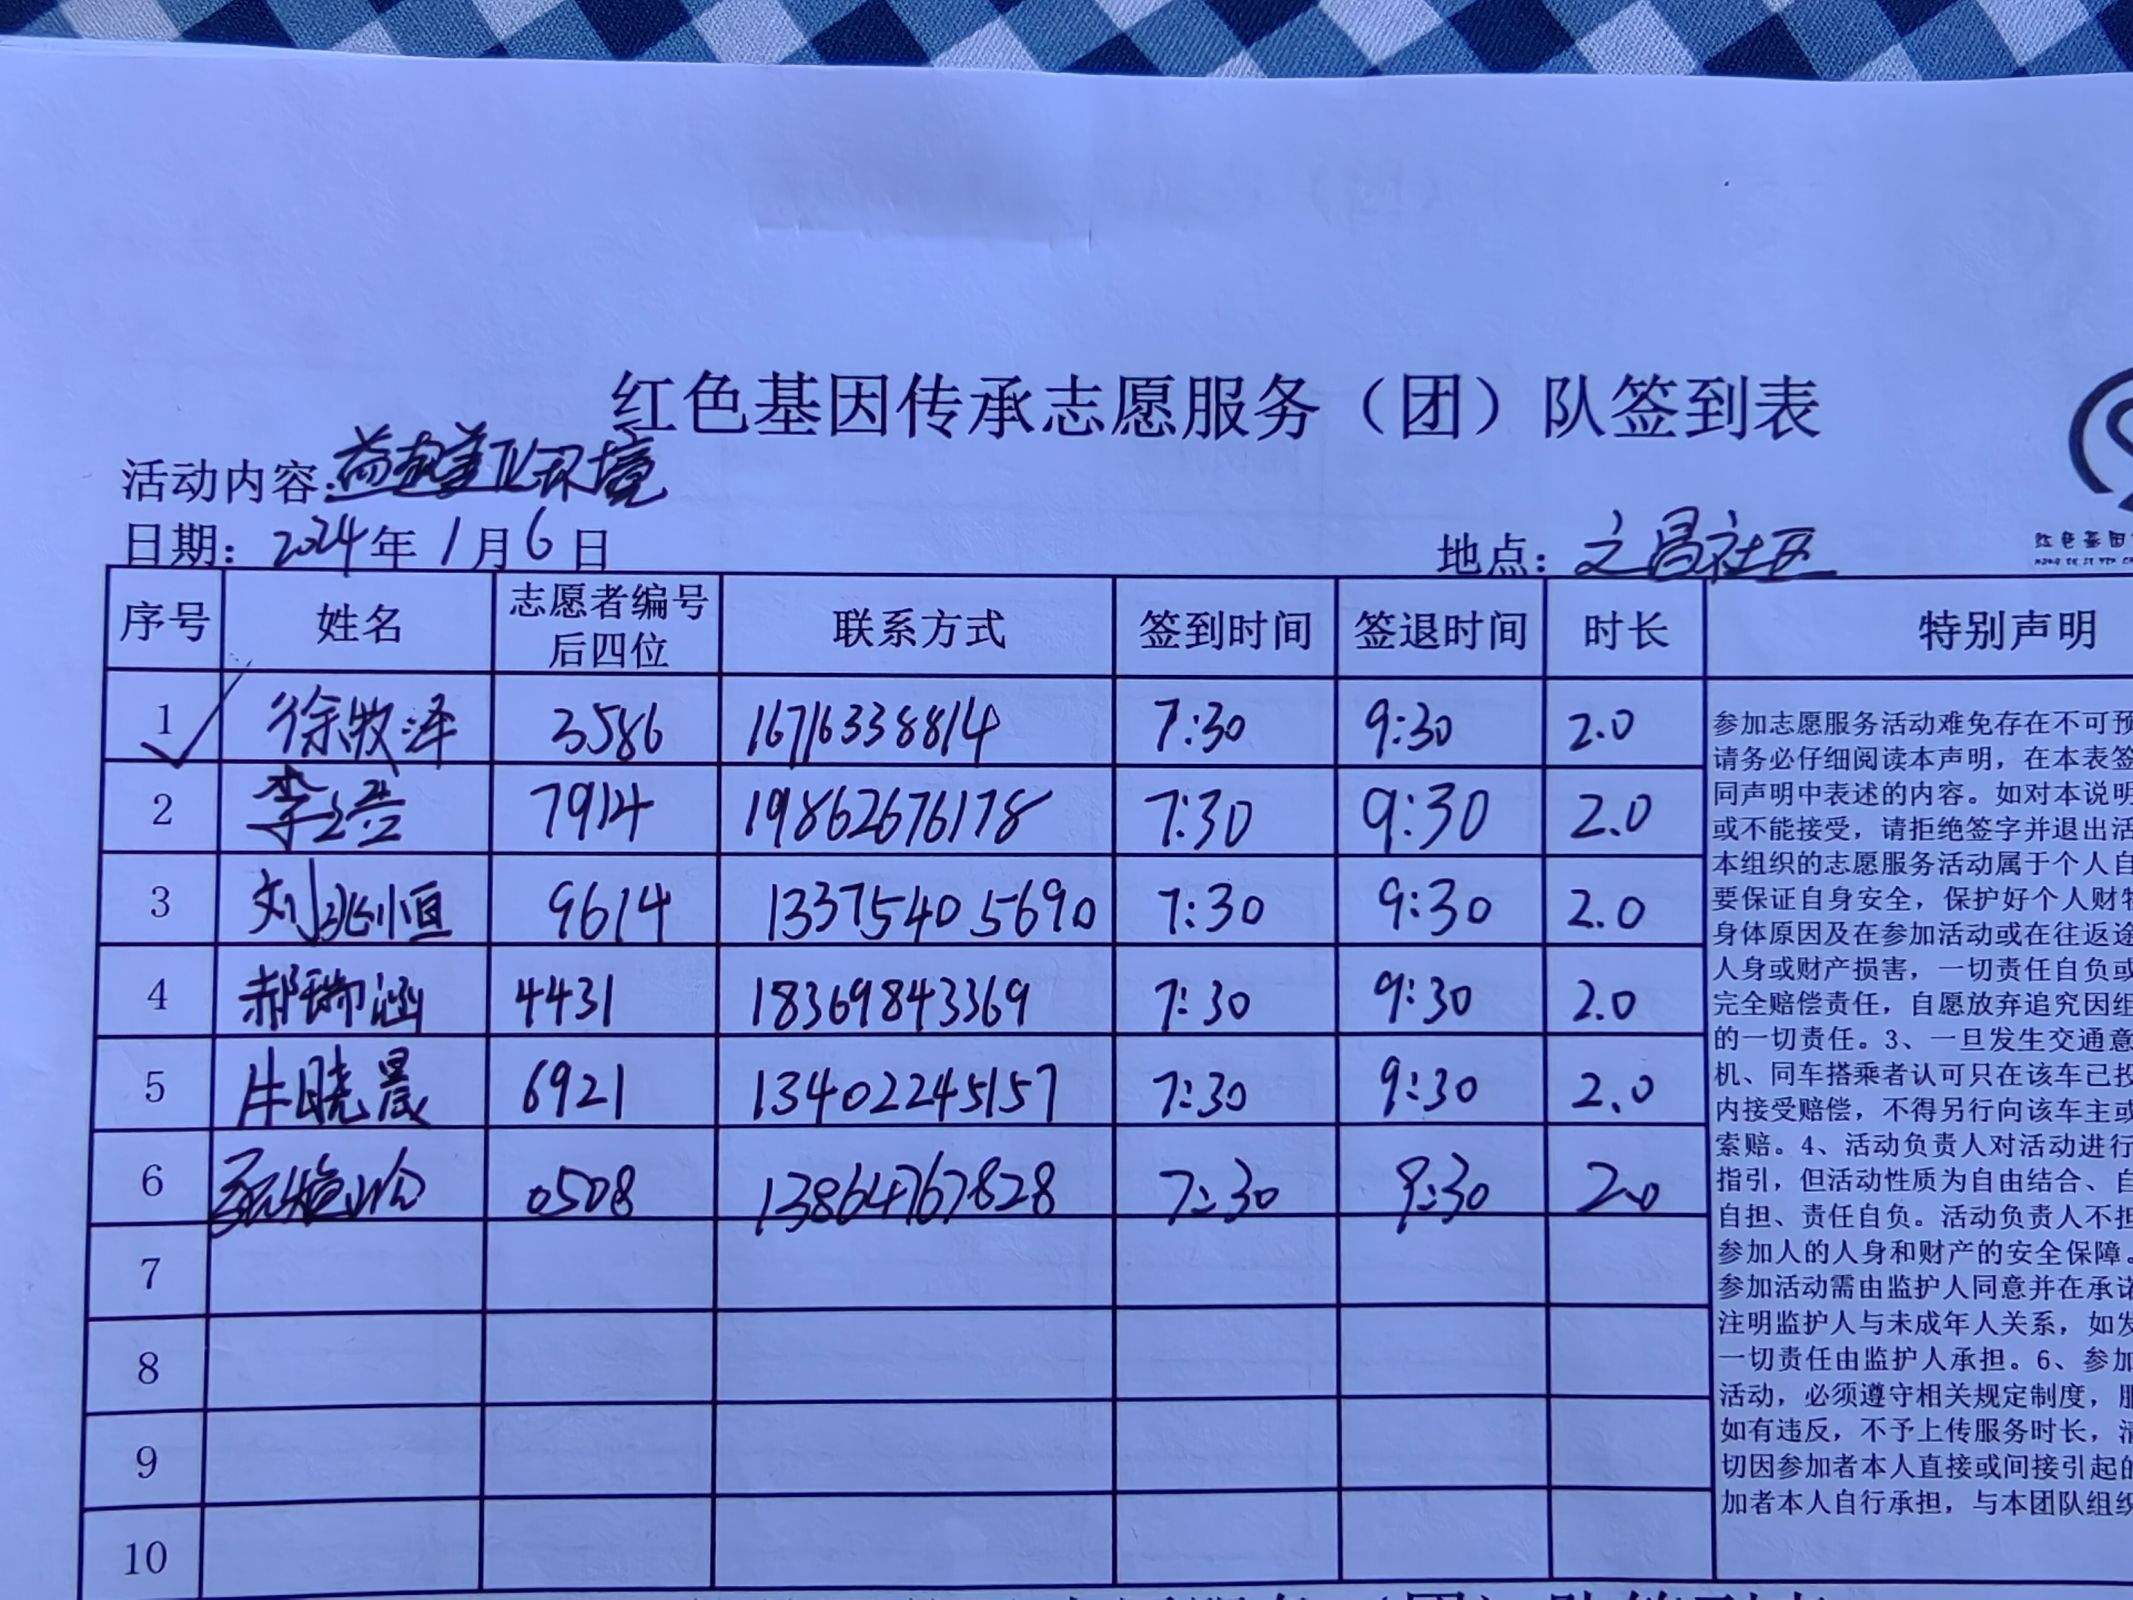 红色基因传承志愿服务（团）队签到表
活动内容: 环境
日期：2024年 1月 6日 地点：文昌社区
序号 姓名 志愿者编号后四位 联系方式 签到时间 签退时间 时长 特别声明
1 徐牧泽 3586 16716338814 7:30 9:30 2.0
2 李 7914 19862676178 7:30 9:30 2.0
3 刘兆恒 9614 13375405690 7:30 9:30 2.0
4 郝瑞涵 4431 18369843369 7:30 9:30 2.0
5 牛晓晨 6921 13402245157 7:30 9:30 2.0
6 0508 13864767828 7:30 9:30 2.0
7
8
9
10
参加志愿服务活动难免存在不可预
请务必仔细阅读本声明，在本表签
同声明中表述的内容。如对本说明
或不能接受，请拒绝签字并退出活
本组织的志愿服务活动属于个人自
要保证自身安全，保护好个人财物
身体原因及在参加活动或在往返途
人身或财产损害，一切责任自负或
完全赔偿责任，自愿放弃追究因组
的一切责任。3、一旦发生交通意
机、同车搭乘者认可只在该车已投
内接受赔偿，不得另行向该车主或
索赔。4、活动负责人对活动进行
指引，但活动性质为自由结合、自
自担、责任自负。活动负责人不担
参加人的人身和财产的安全保障。
参加活动需由监护人同意并在承诺
注明监护人与未成年人关系，如发
一切责任由监护人承担。6、参加
活动，必须遵守相关规定制度，服
如有违反，不予上传服务时长，清
切因参加者本人直接或间接引起的
加者本人自行承担，与本团队组织
红色基因